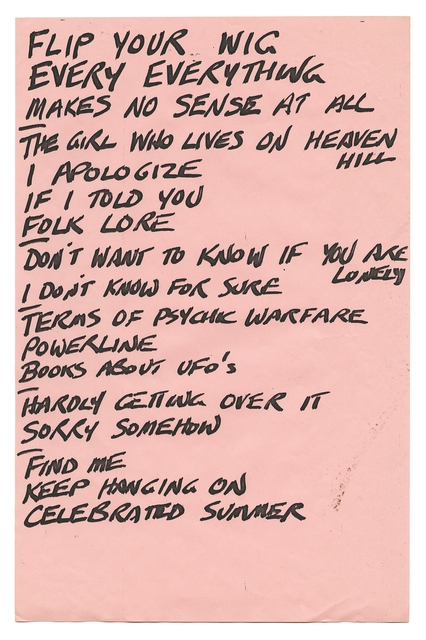 FLIP YOUR WIG
EVERY EVERYTHING
MAKES NO SENSE AT ALL
THE GIRL WHO LIVES ON HEAVEN
HILL
I APOLOGIZE
IF I TOLD YOU
FOLK LORE
DON'T WANT TO KNOW IF YOU ARE
LONELY
I DON'T KNOW FOR SURE
TERMS OF PSYCHIC WARFARE
POWERLINE
BOOKS ABOUT UFO'S
HARDLY GETTING OVER IT
SORRY SOMEHOW
FIND ME
KEEP HANGING ON
CELEBRATED SUMMER